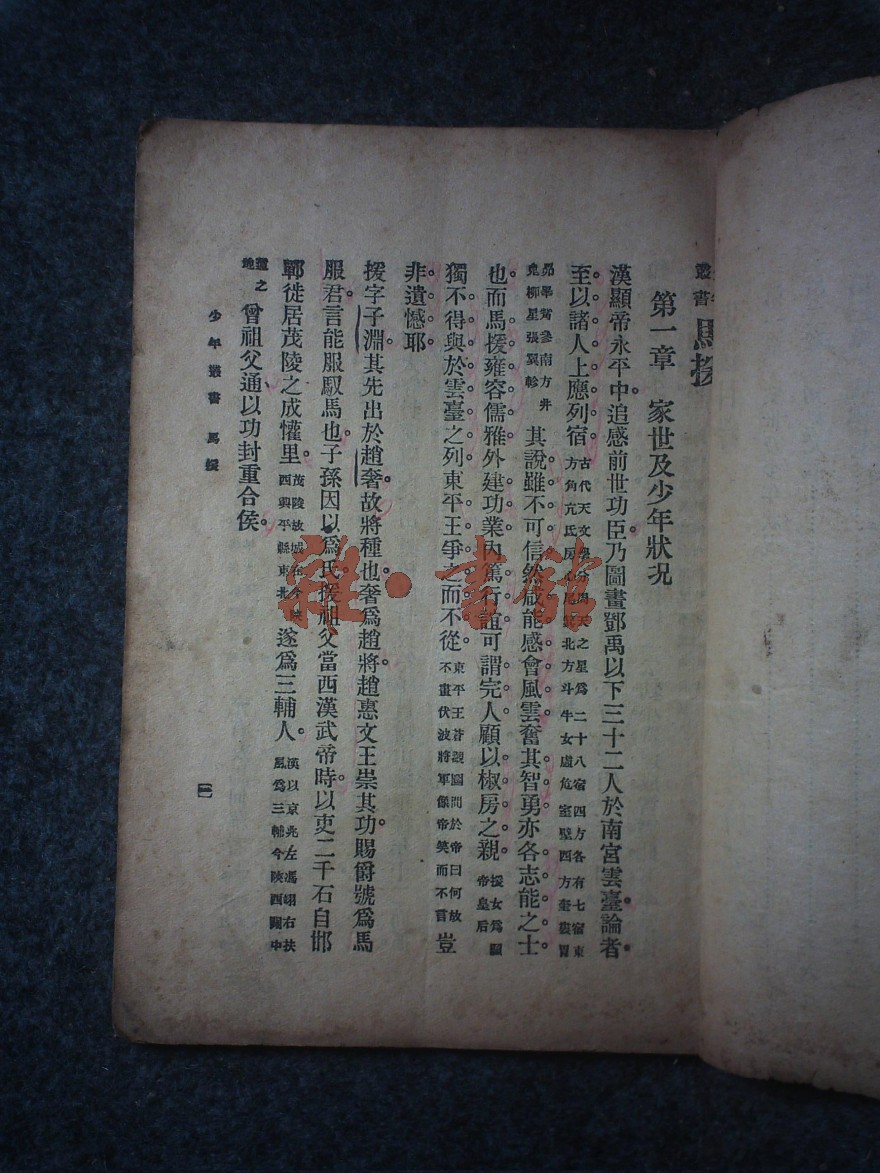 叢書 馬援
第一章 家世及少年狀况
漢顯帝永平中。追感前世功臣。乃圖畫鄧禹以下三十二人於南宮雲臺。論者
至以諸人上應列宿。古代天文學分周天之星爲二十八宿四方各有七宿東方角亢氐房心尾箕北方斗牛女虛危室壁西方奎婁胃
昴畢觜參南方井鬼柳星張翼軫其說雖不可信。然咸能感會風雲。奮其智勇。亦各志能之士
也。而馬援雍容儒雅。外建功業。內篤行誼。可謂完人。顧以椒房之親。援女爲顯帝皇后
獨不得與於雲臺之列。東平王爭之而不從。東平王蒼觀圖問於帝曰何故不畫伏波將軍像帝笑而不言豈
非遺憾耶。
援字子淵。其先出於趙奢。故將種也。奢爲趙將。趙惠文王崇其功。賜爵號爲馬
服君。言能服馭馬也。子孫因以爲氏。援祖父當西漢武帝時。以吏二千石自邯
鄲徙居茂陵之成懽里。茂陵故城在今陝西興平縣東北遂爲三輔人。漢以京兆左馮翊右扶風爲三輔今陝西關中
道之地曾祖父通以功封重合侯。
少年叢書 馬援
雜·書館